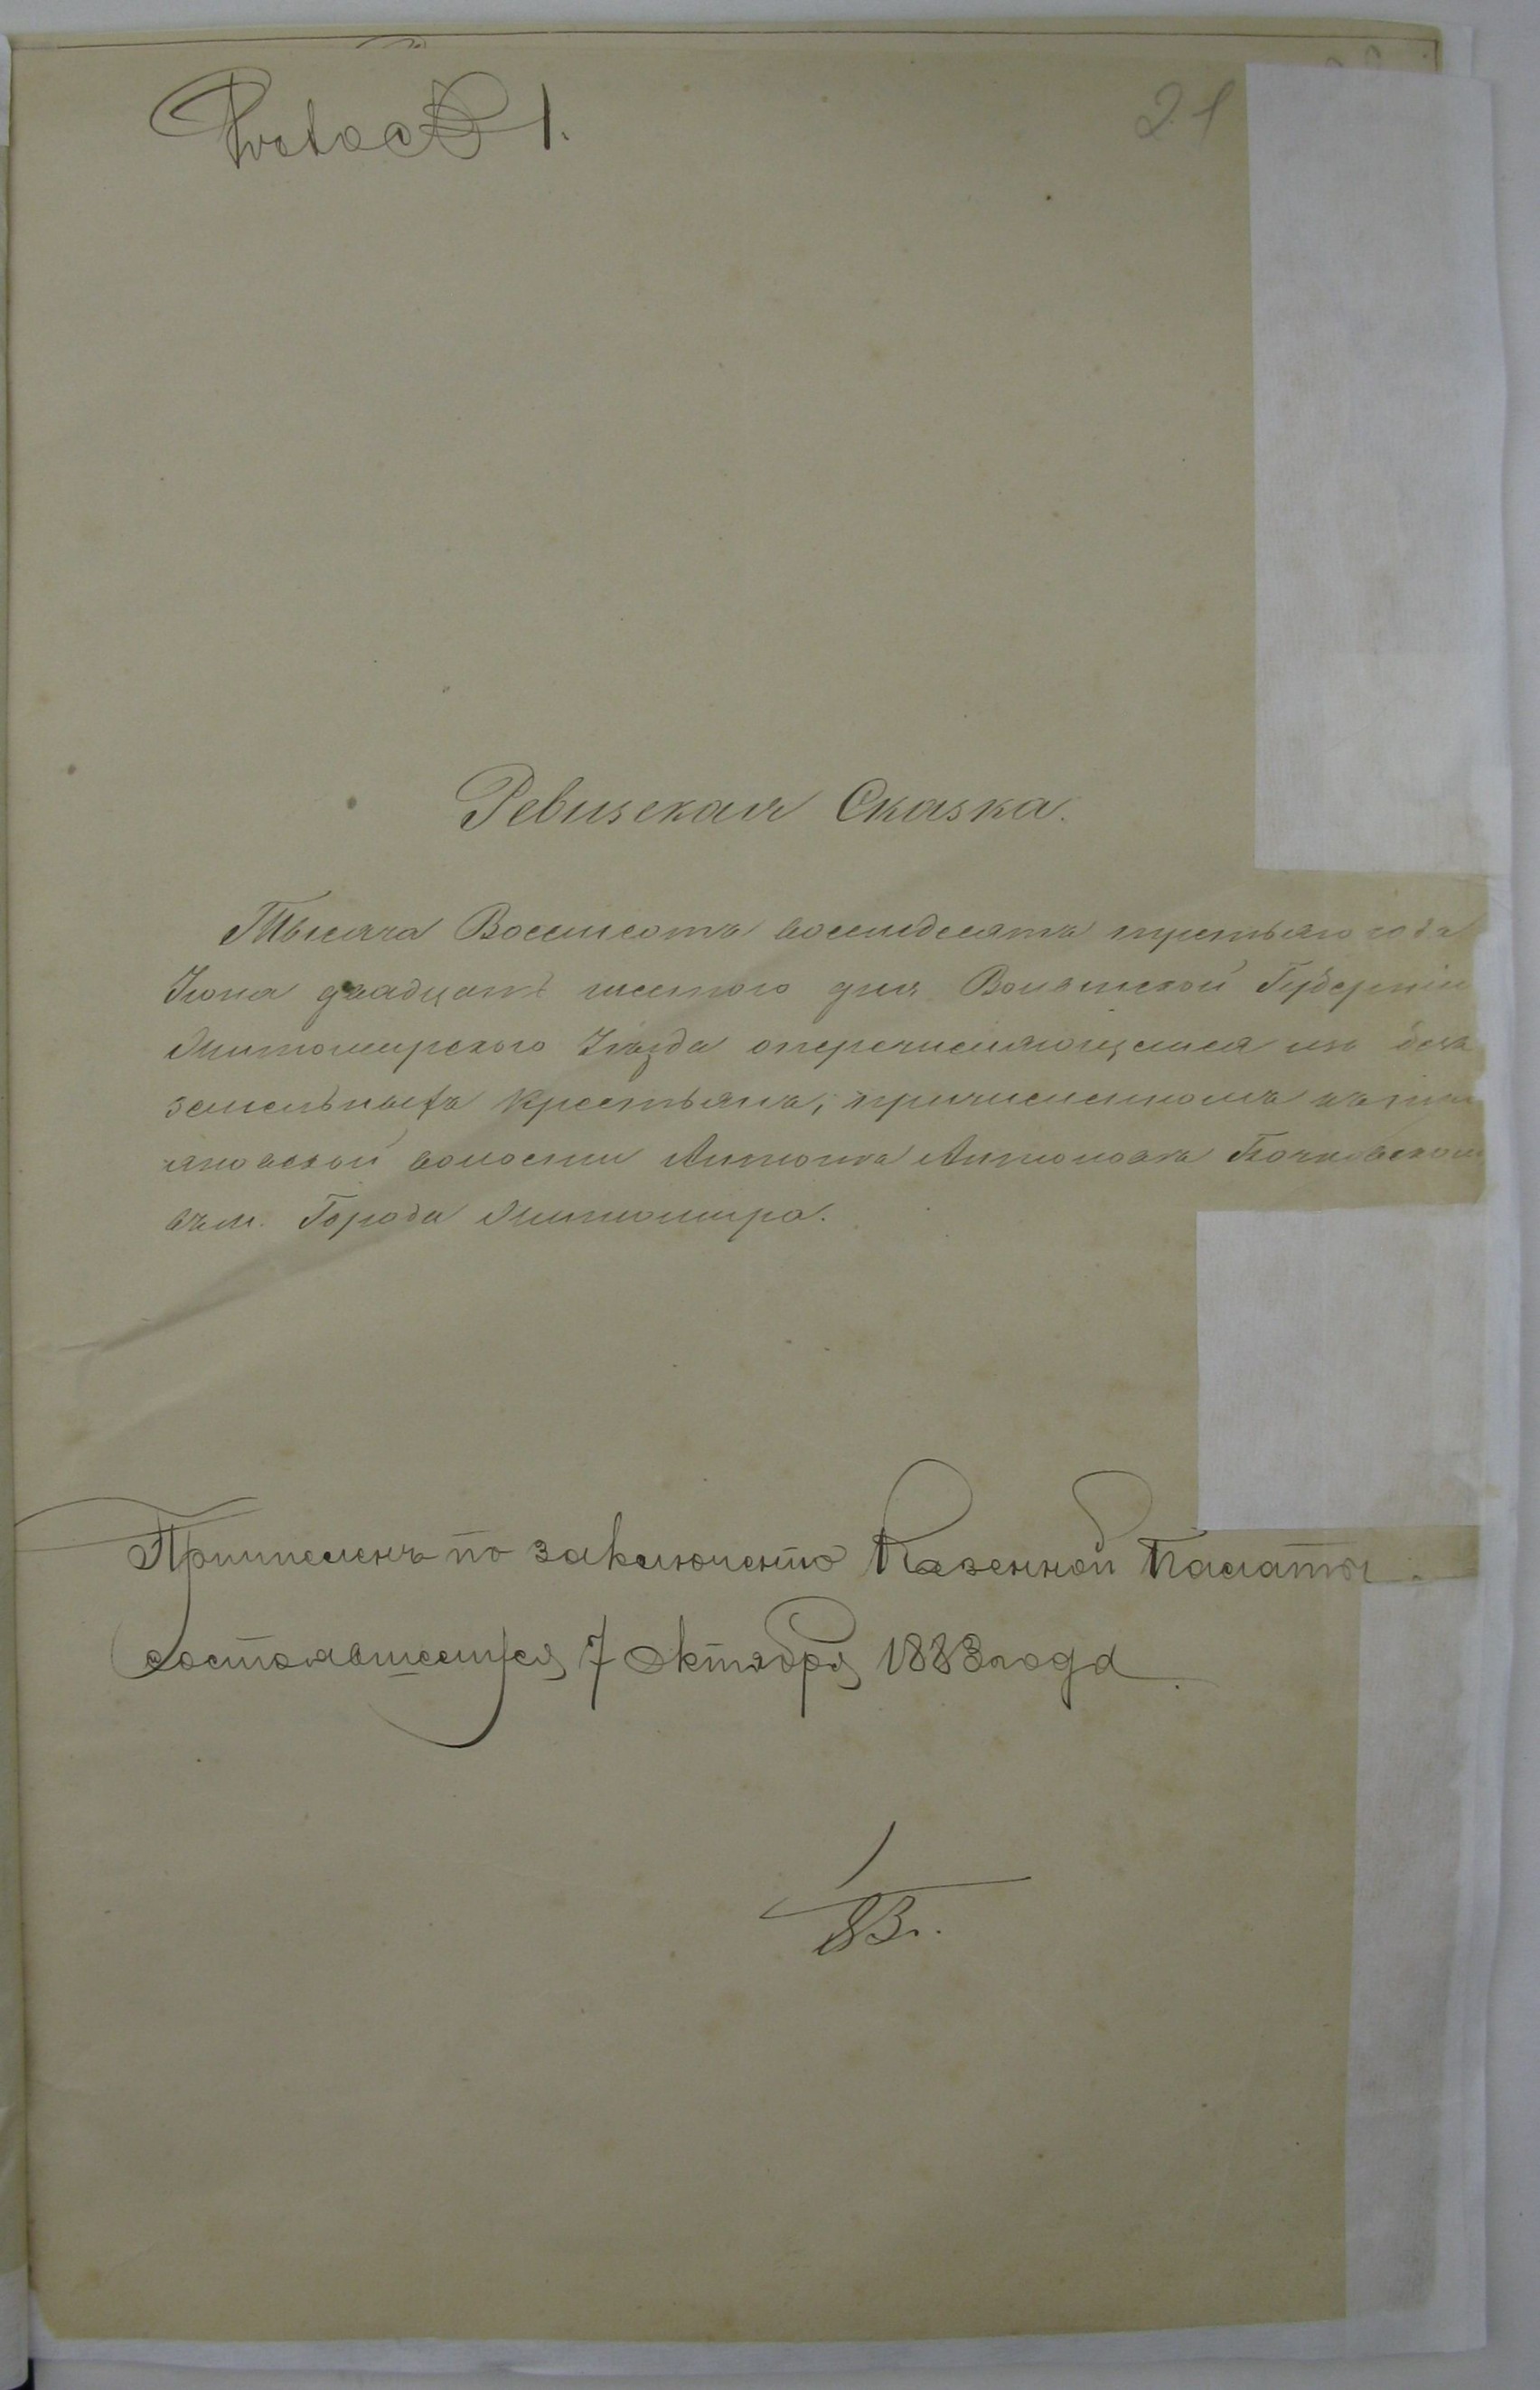 1.
21
Ревизская Сказка.
Тысяча Восемсотъ восемдесятъ третьяго года
Іюня двадцать шестого дня Волынской Губерніи
Житомирскаго Уѣзда о перечисляющемся изъ без
земельныхъ крестьянъ, причисленномъ къ
яновской волости Антонъ Антоновъ Бочковском
въ м. Города Житомира.
Причисленъ по заключенію Казенной Палаты
состоявшемуся 7 Октября 1883 года.
1
83 г.